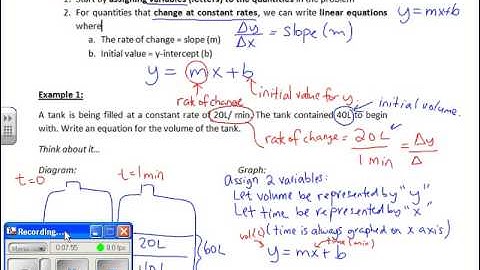 1. Start by assigning variables (letters) to the quantities in the problem
2. For quantities that change at constant rates, we can write linear equations
where
y = mx+b
Δy
Δx
= slope (m)
a. The rate of change = slope (m)
b. Initial value = y-intercept (b)
y = mx+b
rate of change
initial value for y.
Example 1:
initial volume.
A tank is being filled at a constant rate of 20L/ min. The tank contained 40L to begin
with. Write an equation for the volume of the tank.
rate of change = 20L = Δy
1 min Δ
Think about it...
Diagram:
Graph:
t=0
t=1min
Assign 2 variables:
Let volume be represented by "y"
Let time be represented by "x"
(time is always graphed on x axis)
vol(L)
time (min)
y = mx + b
Recording...
0:07:55
0.0 fps
20L
60L